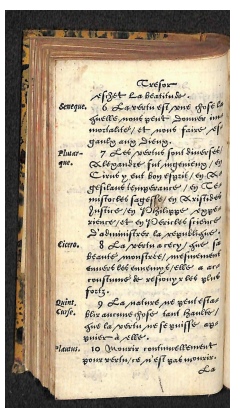 Tresor
estre La beatitude.
Seneque. 6 La vertu est vne chose la
quelle nous peut donner im
mortalité, et nous faire es-
gaulx aux Dieux.
Plutar- 7 Les vertus sont diverses,
que. Alexandre fut ingenieux, en
Cirus y eut bon esprit, en A
gesilaus temperance, en Te
mistocles sagesse, en Aristides
Justice, en Philippe expe-
rience, et en Pericles science
d'administrer la republique.
Cicero. 8 La vertu a cecy, que sa
beauté monstrée, mesmement
envers les ennemys, elle a ac
coustumé de resiouyr les plus
fortz.
Quint. 9 La nature ne peut esta-
Curse. blir aucune chose tant haulte,
que la vertu ne se puisse ap
puier à elle.
Plautus. 10 Mourir continuellement
pour vertu, ce n'est pas mourir.
La